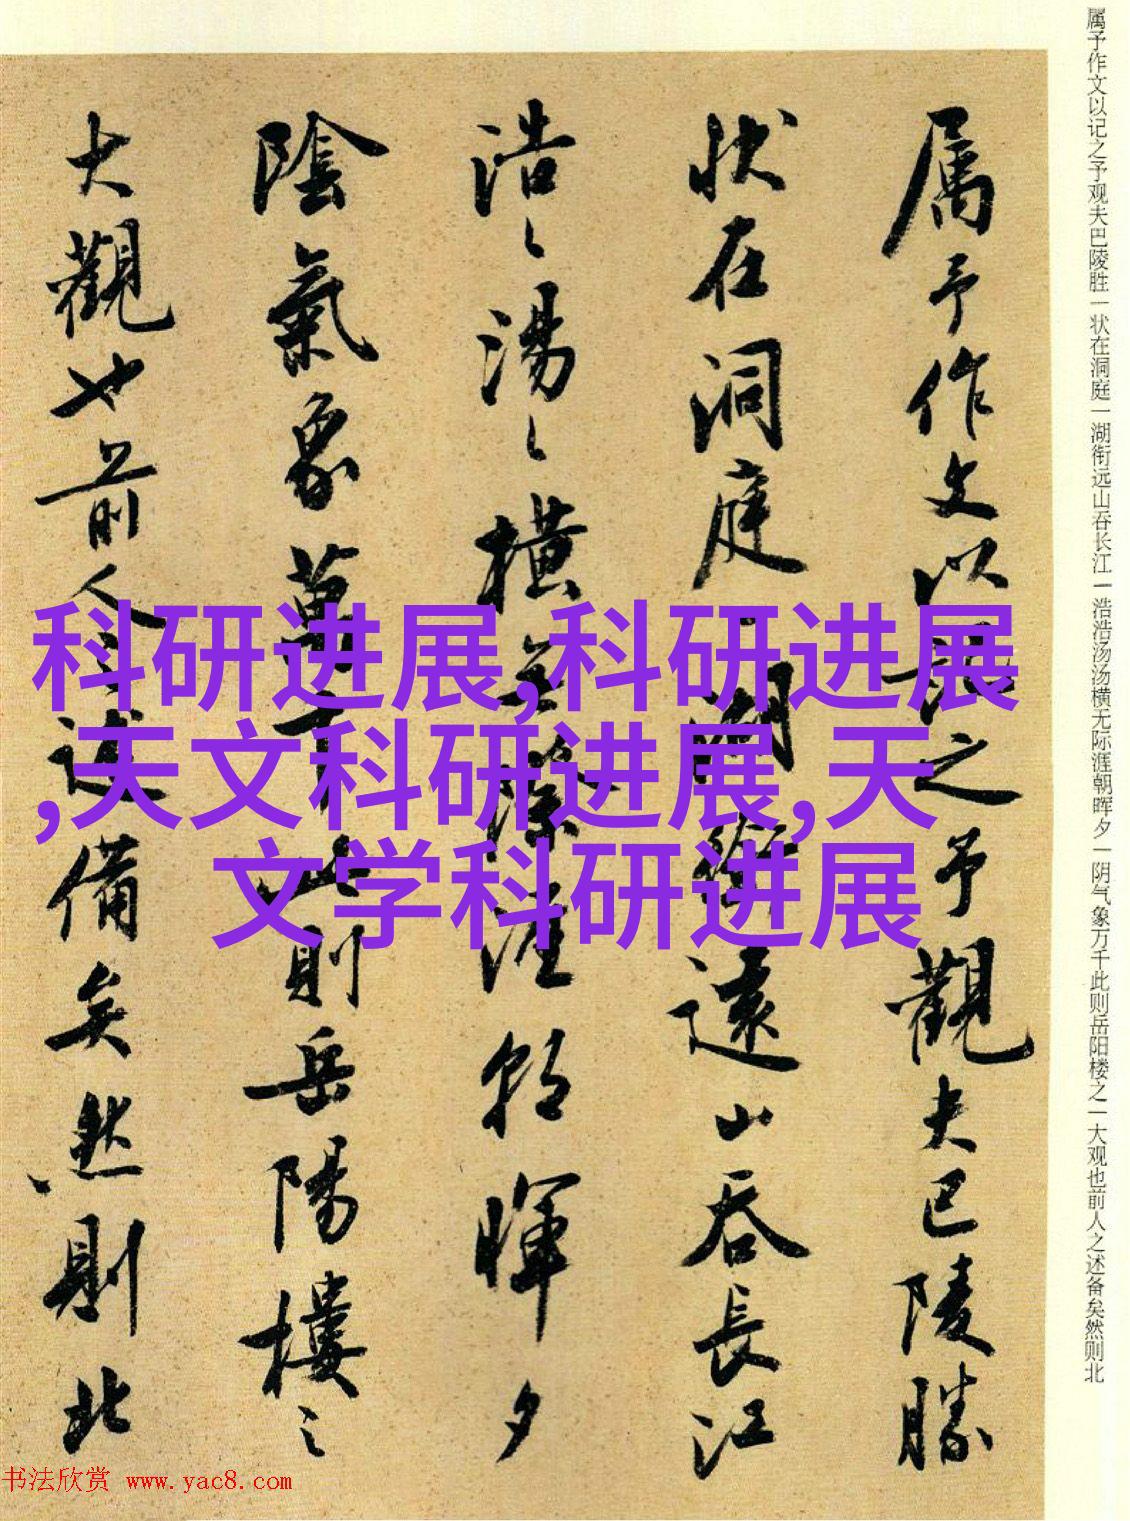 属予作文以记之予观夫巴陵胜一状在洞庭一湖衔远山吞长江一浩浩汤汤横无际涯朝晖夕一阴气象万千此则岳阳楼之一大观也前人之述备矣然则北
属予作文以記之予觀夫巴陵勝
狀在洞庭一湖銜遠山吞長江
浩〻湯〻橫無際涯朝暉夕
陰氣象萬千此則岳陽樓之
大觀也前人之述備矣然則北
科研进展,科研进展
,天文科研进展,天
文学科研进展
书法欣赏 www.yac8.com